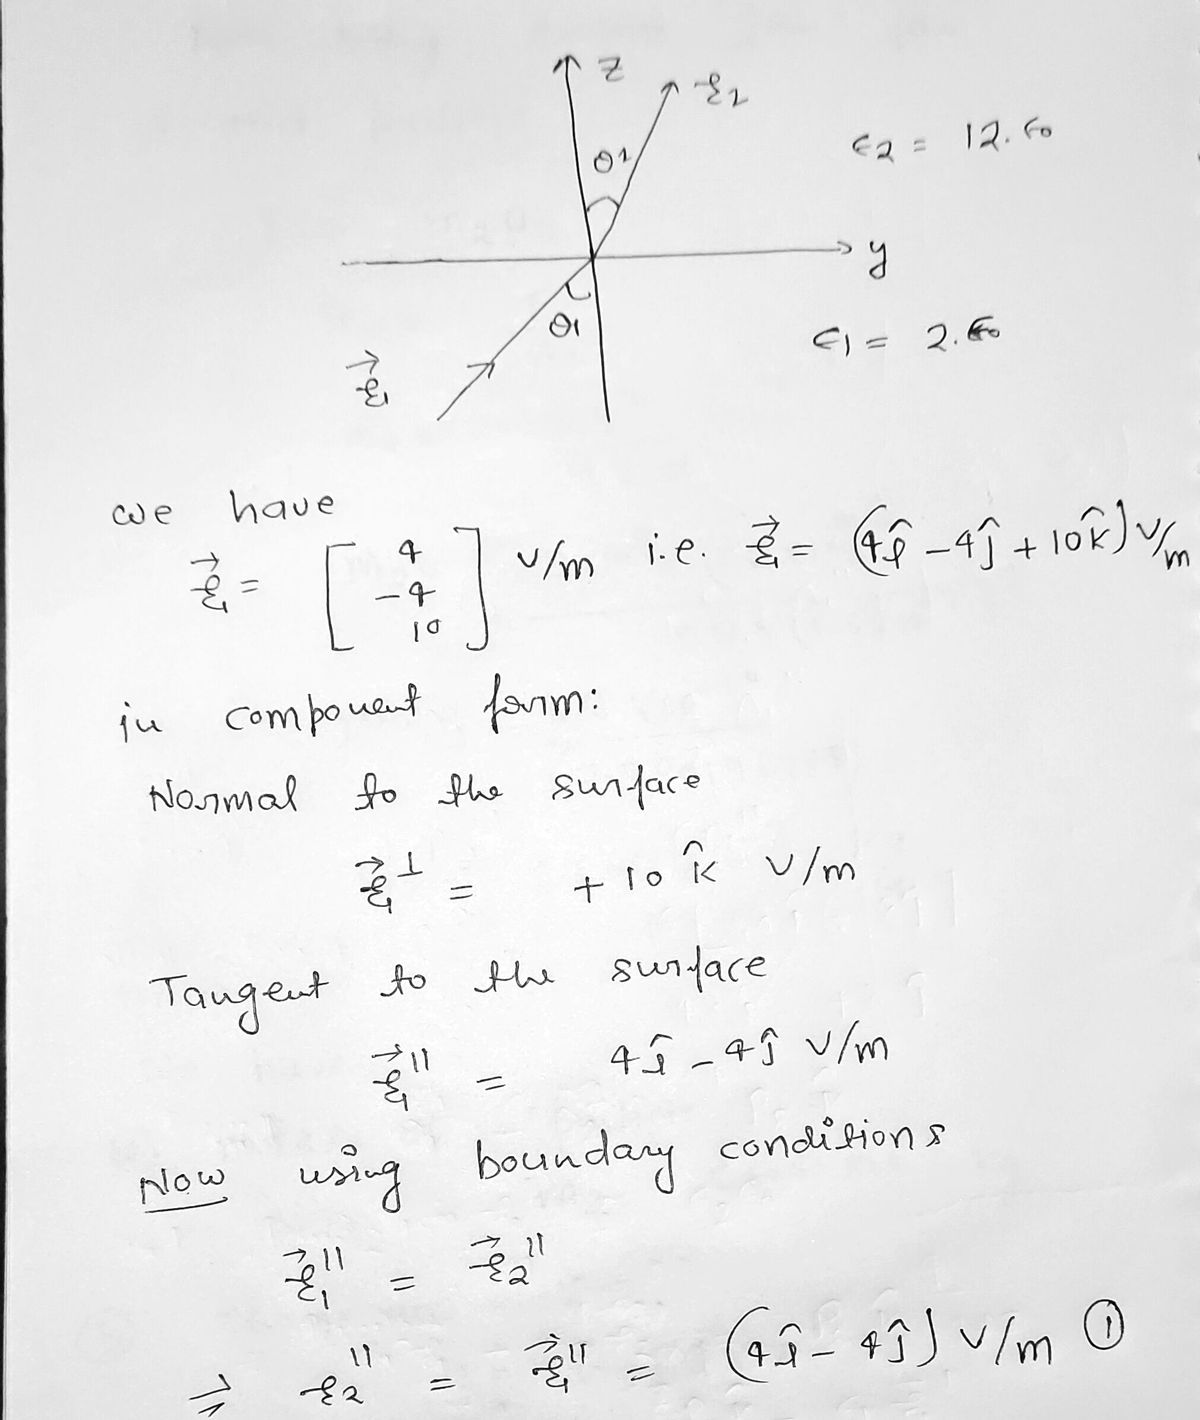 z
ξ2
θ2
ε2 = 12.ε0
y
θ1
ε1 = 2.ε0
ξ⃗1
we have
ξ⃗1 = [ 4
-4
10 ] V/m i.e. ξ⃗1 = (4î - 4ĵ + 10k̂) V/m
in component form:
Normal to the surface
ξ⃗1⊥ = + 10 k̂ V/m
Tangent to the surface
ξ⃗1|| = 4î - 4ĵ V/m
Now using boundary conditions
ξ⃗1|| = ξ⃗2||
⇒ ξ2|| = ξ⃗1|| = (4î - 4ĵ) V/m ①